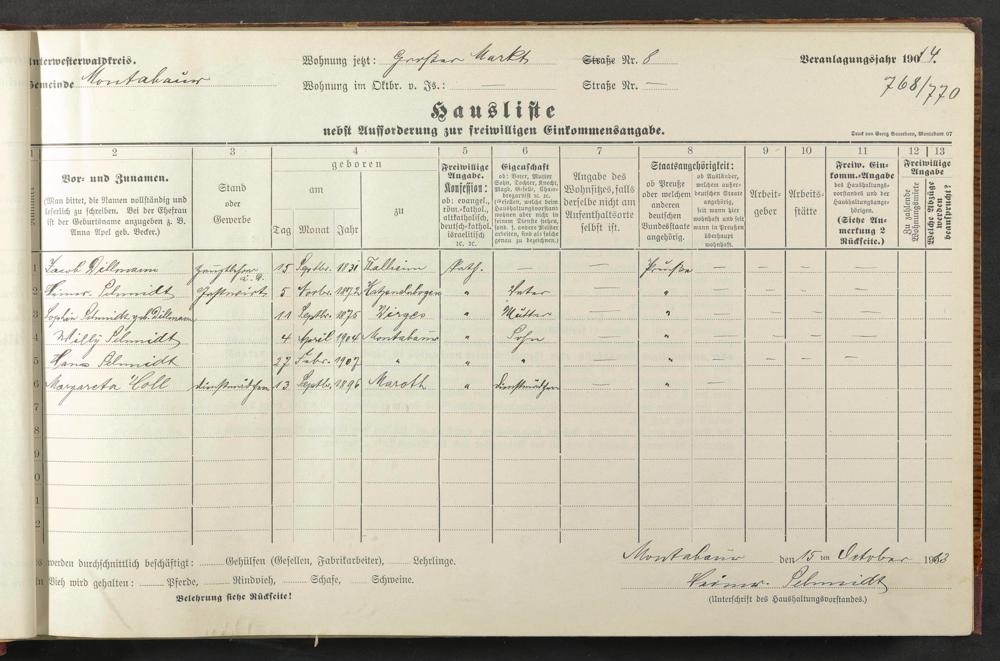 Unterwesterwaldkreis. Wohnung jetzt: Großer Markt Straße Nr. 8 Veranlagungsjahr 1914.
Gemeinde Montabaur Wohnung im Oktbr. v. Js.: — Straße Nr. — 768/770
Hausliste
nebst Aufforderung zur freiwilligen Einkommensangabe.
Druck von Georg Sauerborn, Montabaur 07
1 2 3 4 5 6 7 8 9 10 11 12 13
Vor- und Zunamen.
(Man bittet, die Namen vollständig und
leserlich zu schreiben. Bei der Ehefrau
ist der Geburtsname anzugeben z. B.
Anna Apel geb. Becker.)
Stand
oder
Gewerbe
geboren
am
Tag Monat Jahr
zu
Freiwillige
Angabe.
Konfession:
ob: evangel.,
röm.-kathol.,
altkatholisch,
deutsch-kathol.
israelitisch
ꝛc. ꝛc.
Eigenschaft
ob: Vater, Mutter
Sohn, Tochter, Knecht,
Magd, Geselle,
(Gesellen, welche beim
Haushaltungsvorstand
wohnen aber nicht in
seinem Dienste stehen,
sond. f. andere Meister
arbeiten, sind als solche
genau zu bezeichnen.)
Angabe des
Wohnsitzes, falls
derselbe nicht am
Aufenthaltsorte
selbst ist.
Staatsangehörigkeit:
ob Preuße
oder welchem
anderen
deutschen
Bundesstaate
angehörig.
ob Ausländer,
welchem außer-
deutschen Staate
angehörig,
seit wann hier
wohnhaft und seit
wann in Preußen
überhaupt
wohnhaft.
Arbeit-
geber
Arbeits-
stätte
Freiw. Ein-
komm.-Angabe
des Haushaltungs-
vorstandes und der
Haushaltungsange-
hörigen.
(Siehe An-
merkung 2
Rückseite.)
Freiwillige
Angabe
Zu zahlende
Wohnungsmiete
Welche Abzüge
werden
beansprucht?
1 Jacob Dillmann Hauptlehrer a. D. 15 Septbr. 1831 Kath. — Preuße — — — —
2 Heinr. Schmidt Gastwirt 5 Novbr. 1872 Katzenelnbogen " Vater — " — — — —
3 Sophie Schmidt geb. Dillmann 11 Septbr. 1875 Wirges " Mutter — " — — — —
4 Willy Schmidt 4 April 1904 Montabaur " Sohn — " — — — —
5 Hans Schmidt 27 Febr. 1907 " " " — " — — — —
6 Margareta Coll Dienstmädchen 13 Septbr. 1896 Maroth " Dienstmädchen — " —
7
8
9
0
1
2
Es werden durchschnittlich beschäftigt: Gehülfen (Gesellen, Fabrikarbeiter), Lehrlinge.
An Vieh wird gehalten: Pferde, Rindvieh, Schafe, Schweine.
Belehrung siehe Rückseite!
Montabaur den 15 ten October 1913
Heinr. Schmidt
(Unterschrift des Haushaltungsvorstandes.)